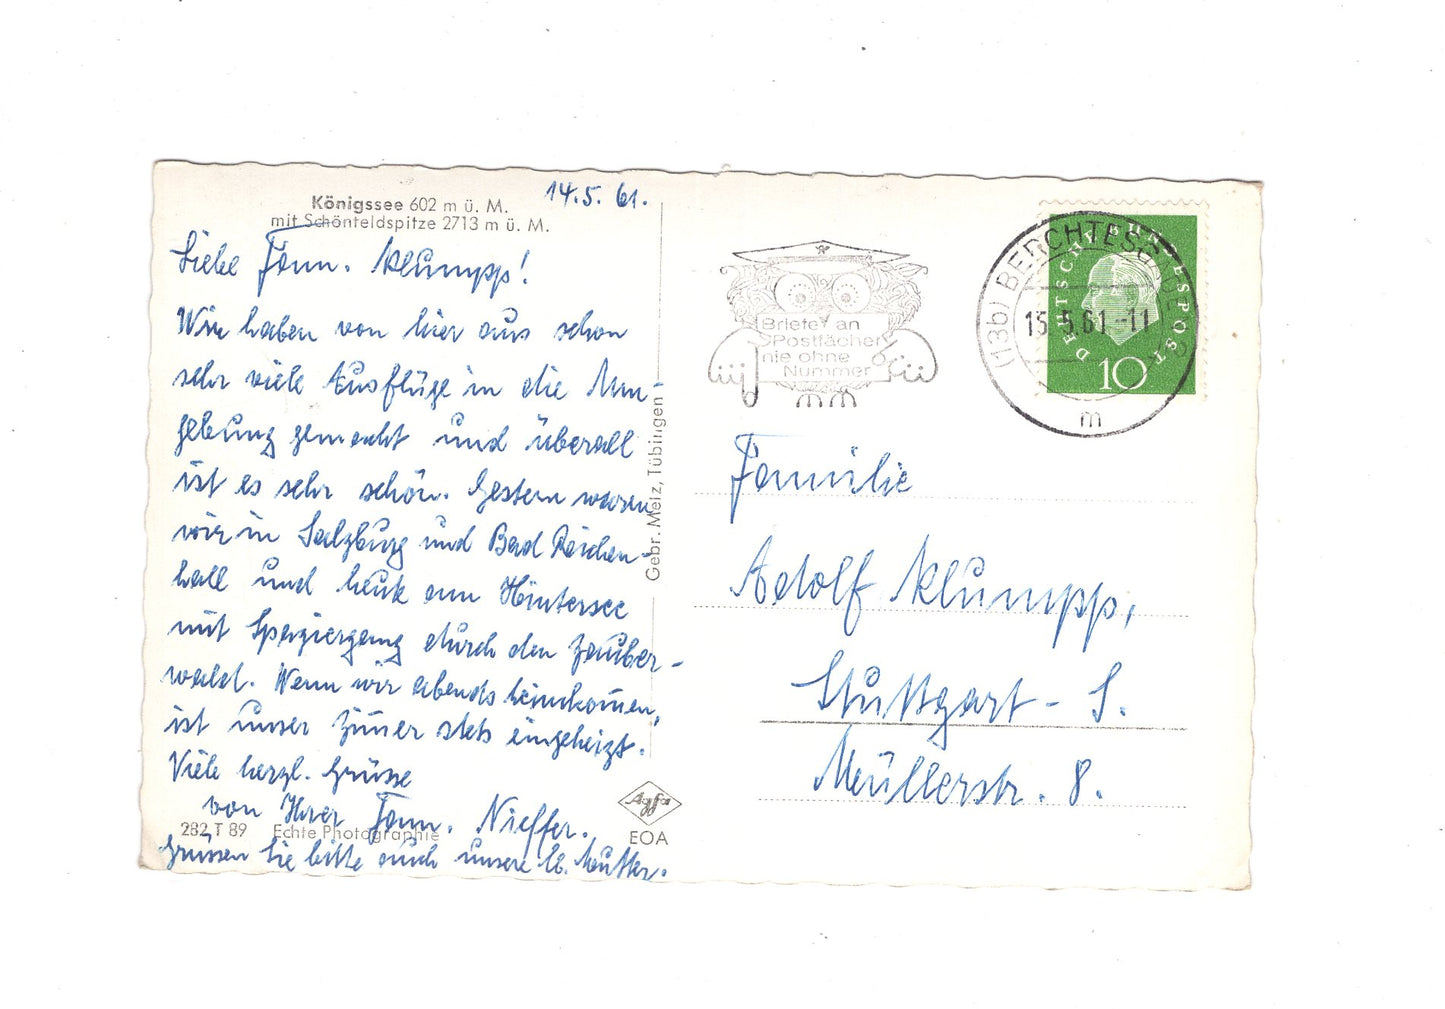 Königssee 602 m ü. M.
mit Schönfeldspitze 2713 m ü. M.
14.5.61.
Liebe Fam. Klumpp!
Wir haben von hier aus schon
sehr viele Ausflüge in die Um-
gebung gemacht und überall
ist es sehr schön. Gestern waren
wir in Salzburg und Bad Reichen-
hall und heute am Hintersee
mit Spaziergang durch den Zauber-
wald. Wenn wir abends heimkom̄en,
ist unser Zim̄er stets eingeheizt.
Viele herzl. Grüsse
von Ihrer Fam. Nieffer.
Grüssen Sie bitte auch unsere lb. Mutter.
282 T 89 Echte Photographie
Agfa
EOA
Gebr. Metz, Tübingen
Briefe an
Postfächer
nie ohne
Nummer
(13b) BERCHTESGADEN
15.5.61.-11
m
DEUTSCHE BUNDESPOST
10
Familie
Adolf Klumpp,
Stuttgart - S.
Müllerstr. 8.